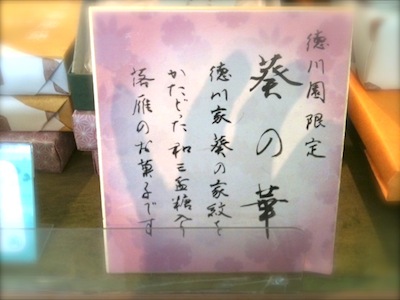 徳川園限定
葵の華
徳川家葵の家紋を
かたどった和三盆糖入り
落雁のお菓子です